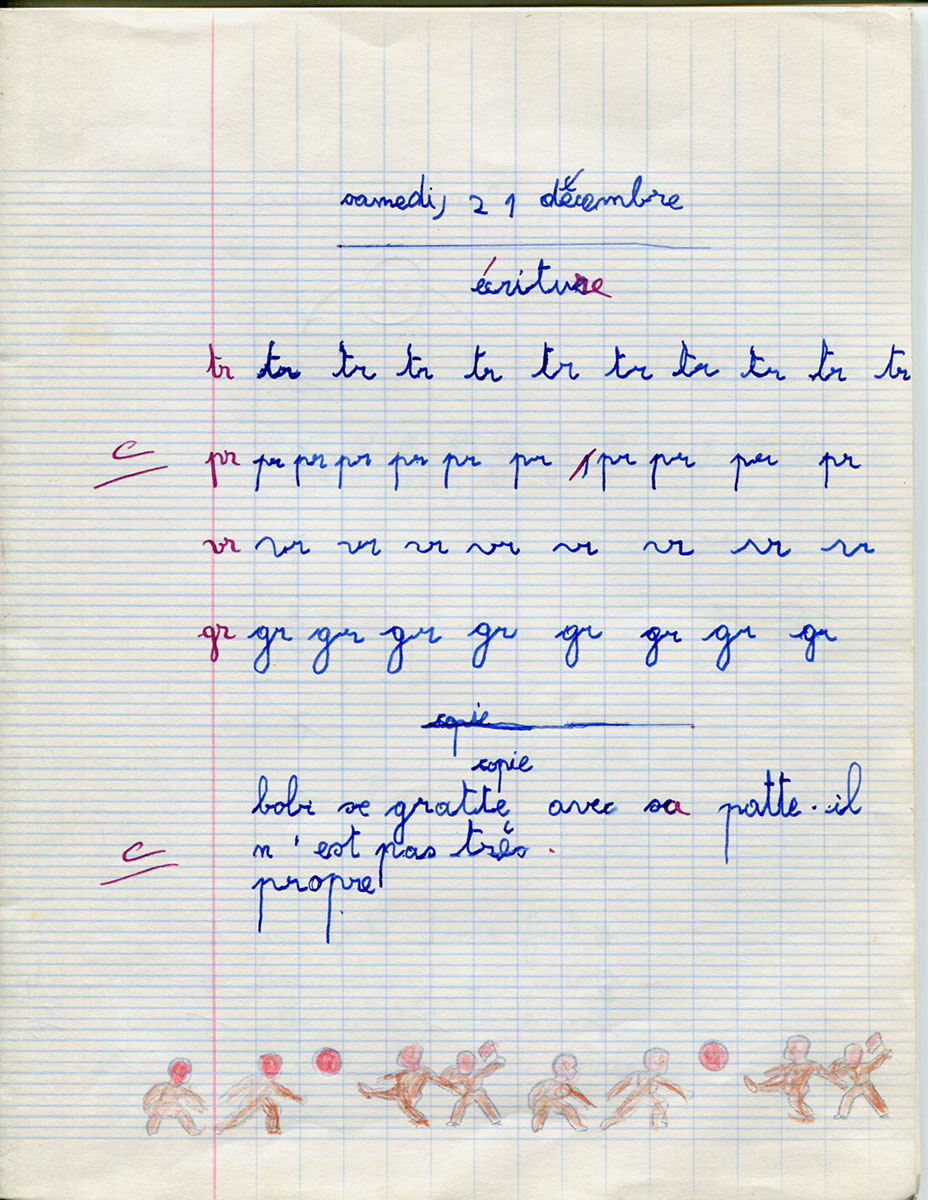 samedi, 21 décembre
écriture
tr tr tr tr tr tr tr tr tr tr tr
c pr pr pr pr pr pr pr pr pr pr pr
vr vr vr vr vr vr vr vr vr
gr gr gr gr gr gr gr gr gr
copie
copie
bobi se gratte avec sa patte. il
c n'est pas très.
propre